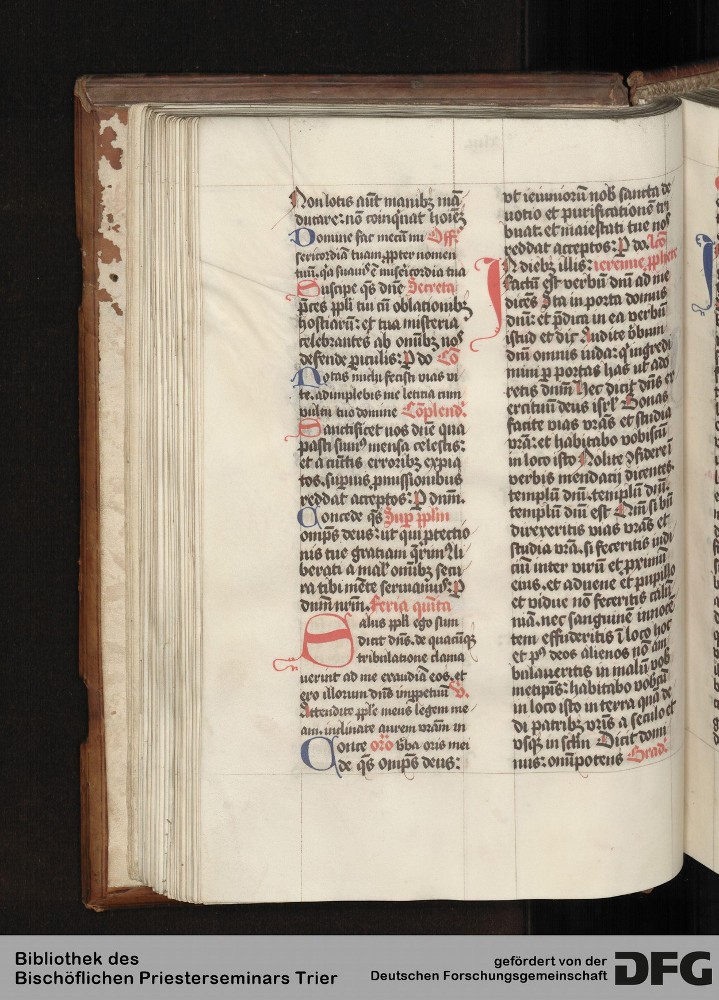 Non lotis aūt manibꝫ mā
ducare: nō coinq̇nat hoīeꝫ
Domine fac mecū mi Off̄
sericordiā tuam, ꝓpter nomen
tuū. q̇a suauis ē misericordia tua
Suscipe q̄s dn̄e Secreta
p̄ces ppl̄i tui cū oblationibꝫ
hostiarū: et tua misteria
celebrantes ab om̄ibꝫ nos
defende ꝑiculis: P do Cō
Notas michi fecisti vias vi
te. adimplebis me leticia cum
vultu tuo domine Cōplend'.
Sanctificet nos dn̄e qua
pasti sumꝰ mensa celestis:
et a cūctis erroribꝫ expia
tos. supnis ꝓmissionibus
reddat acceptos: P dnm̄.
Concede q̄s Suꝑ ppl̄m
omp̄s deus: ut qui ꝓtectio
nis tue gratiam q̄rim⁹ li
berati a mal' om̄ibꝫ secu
ra tibi mēte seruiam⁹: P
dnūm nrm̄. feria quīta
Salus ppl̄i ego sum
dicit dn̄s. de quacūqꝫ
tribulatione clama
uerint ad me exaudiā eos. et
ero illorum dn̄s inꝑpetuū V.
Attendite pple meus legem me
am. inclinate aurem vrām in
Conce or̄o v̄ba oris mei
de q̄s omp̄s deus:
vt ieiuniorū nob̄ sancta de
uotio et purificationē tri
buat. et maiestati tue nos
reddat acceptos: P do. Lc̄o
In diebꝫ illis: ieremie ꝓphete
factū est verbū dn̄i ad me
dicēs Sta in porta domus
dn̄i: et p̄dica in ea verbū
istud et dic Audite v̄bum
dn̄i omnis iuda: q̇ ingredi
mini ꝑ portas has ut ado
retis dnūm Hec dicit dn̄s ex
ercituū deus isrl̄ Bonas
facite vias vrās et studia
vrā: et habitabo vobiscū
in loco isto Nolite ꝯfidere ī
verbis mendacii dicentes.
templū dn̄i. templū dn̄i.
templū dn̄i est Qm̄ si bn̄
direxeritis vias vrās et
studia vrā. si feceritis iudi
ciū inter virū et ꝓximū
eius. et aduene et pupillo
et vidue nō feceritis calū
niam. nec sanguinē innocē
tem effuderitis ī loco hoc
et pꝰ deos alienos nō am
bulaueritis in malū vob̄
metip̄is: habitabo vobcū
in loco isto in terra quā de
di patribꝫ vrīs a seculo et
vsqꝫ in sc̄lm Dicit domi
nus: om̄ipotens Grad'.
Bibliothek des
Bischöflichen Priesterseminars Trier
gefördert von der
Deutschen Forschungsgemeinschaft
DFG